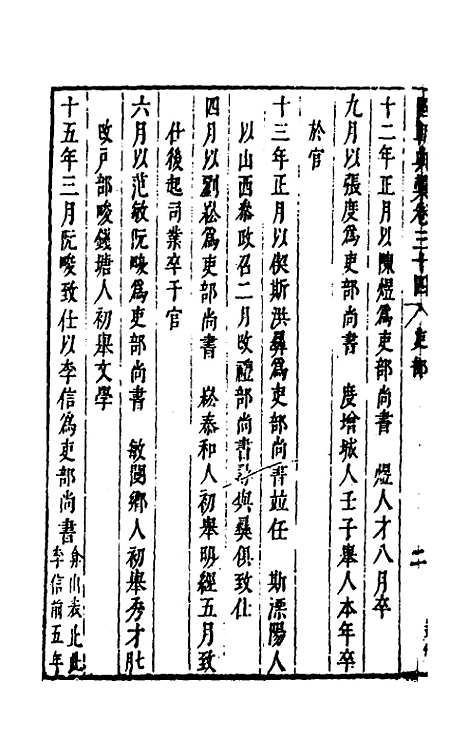 國朝典彙卷三十四 吏部 二
十二年正月以陳煜為吏部尚書 煜人才八月卒
九月以張度為吏部尚書 度增城人壬子舉人本年卒
於官
十三年正月以偰斯洪彝為吏部尚書並任 斯溧陽人
以山西參政召二月改禮部尚書尋與彝俱致仕
四月以劉崧為吏部尚書 崧泰和人初舉明經五月致
仕後起司業卒于官
六月以范敏阮畯為吏部尚書 敏閿鄉人初舉秀才七月
改戶部畯錢塘人初舉文學
十五年三月阮畯致仕以李信為吏部尚書 弇山表止此
李信前五年